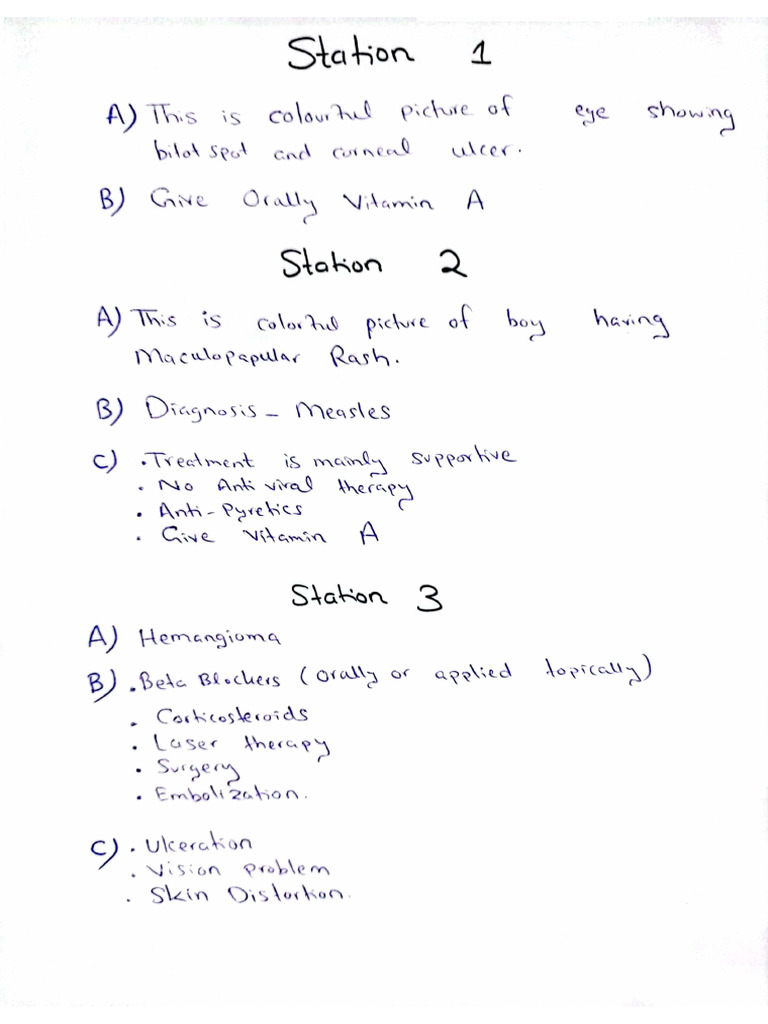 Station 1
A) This is colourful picture of eye showing
bitot spot and corneal ulcer.
B) Give Orally Vitamin A
Station 2
A) This is colorful picture of boy having
Maculopapular Rash.
B) Diagnosis - Measles
C) . Treatment is mainly supportive
. No Anti viral therapy
. Anti-Pyretics
. Give Vitamin A
Station 3
A) Hemangioma
B) . Beta Blockers (orally or applied topically)
. Corticosteroids
. Laser therapy
. Surgery
. Embolization.
C) . Ulceration
. Vision problem
. Skin Distortion.